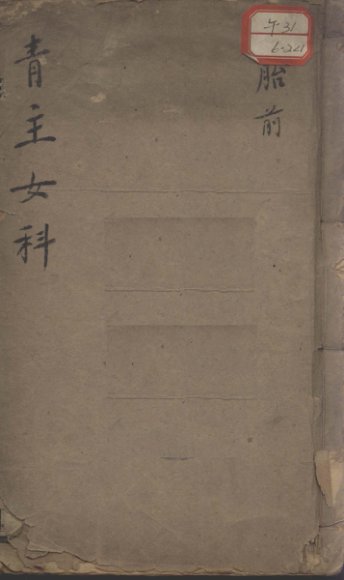 午31
6-241
胎前
青主女科